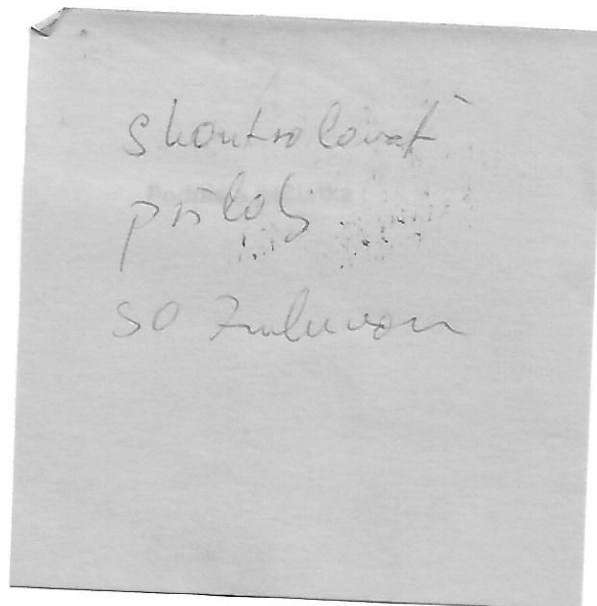 skontrolovať
príloh
so zmluvou